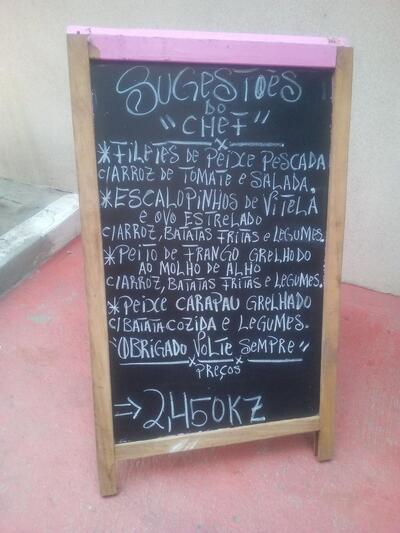 SUGESTÕES
DO
"CHEF"
*FILETES DE PEIXE PESCADA
C/ARROZ DE TOMATE E SALADA.
*ESCALOPINHOS DE VITELA
E OVO ESTRELADO
C/ARROZ, BATATAS FRITAS E LEGUMES.
*PEITO DE FRANGO GRELHODO
AO MOLHO DE ALHO
C/ARROZ, BATATAS FRITAS E LEGUMES.
*PEIXE CARAPAU GRELHADO
C/BATATA COZIDA E LEGUMES.
"OBRIGADO VOLTE SEMPRE"
PREÇOS
⇒ 2,450KZ